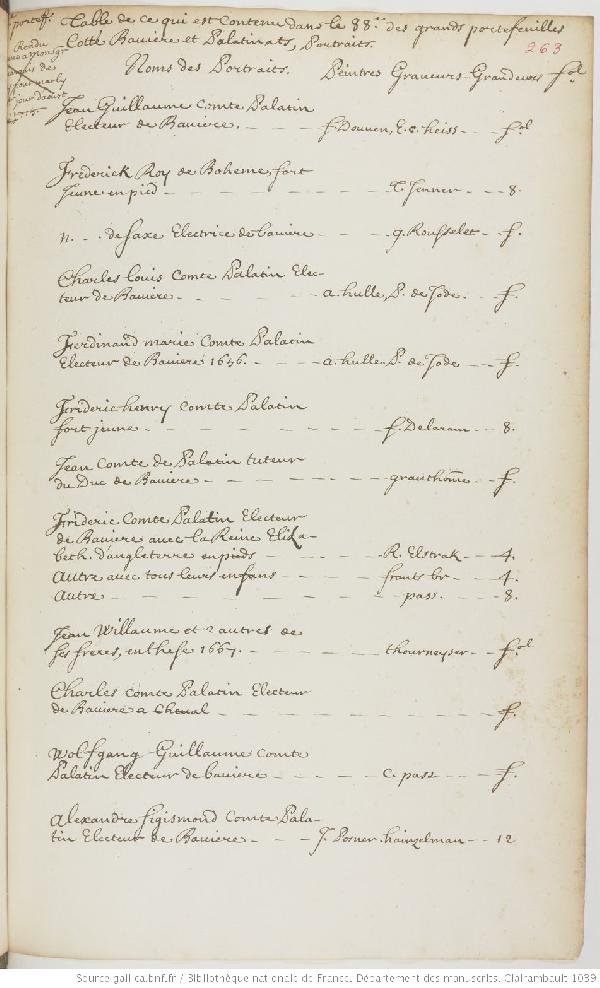 Table de ce qui est contenu dans le 88.e des grands portefeuilles
Cotté Baviere et Palatinats, Portraits.
263
Noms des Portraits. Peintres Graveurs Grandeurs fol
Jean Guillaume Comte Palatin
Electeur de Baviere. f. Douven, E. C. heiss - fol
Frederick Roy de Boheme, fort
Jeune en pied - T. Jenner - 8.
n. - . de Saxe Electrice de baviere - g. Rousselet - f.
Charles Louis Comte Palatin Elec-
teur de Baviere - a. hulle, P. de Jode. - f.
Ferdinand marie Comte Palatin
Electeur de Baviere 1646. - a. hulle, P. de Jode - f.
Frideric henry Comte Palatin
fort jeune - f. Delaram - 8.
Jean Comte de Palatin tuteur
du Duc de Baviere - grauthome - f.
Frideric Comte Palatin Electeur
de Baviere avec la Reine Eliza-
beth d'angleterre en pieds - R. Elstrak - 4.
Autre avec tous leurs enfans - - 4.
Autre - pass. - 8.
Jean Willaume et 2 autres de
ses freres, en these 1667. - thourneyser - fol
Charles Comte Palatin Electeur
de Baviere a Cheval - f.
Wolfgang Guillaume Comte
Palatin Electeur de baviere - C. pass - f.
Alexandre Sigismond Comte Pala-
tin Electeur de Baviere - J. Posner. hainzelman - 12
Source gallica.bnf.fr / Bibliothèque nationale de France. Département des manuscrits. Clairambault 1039